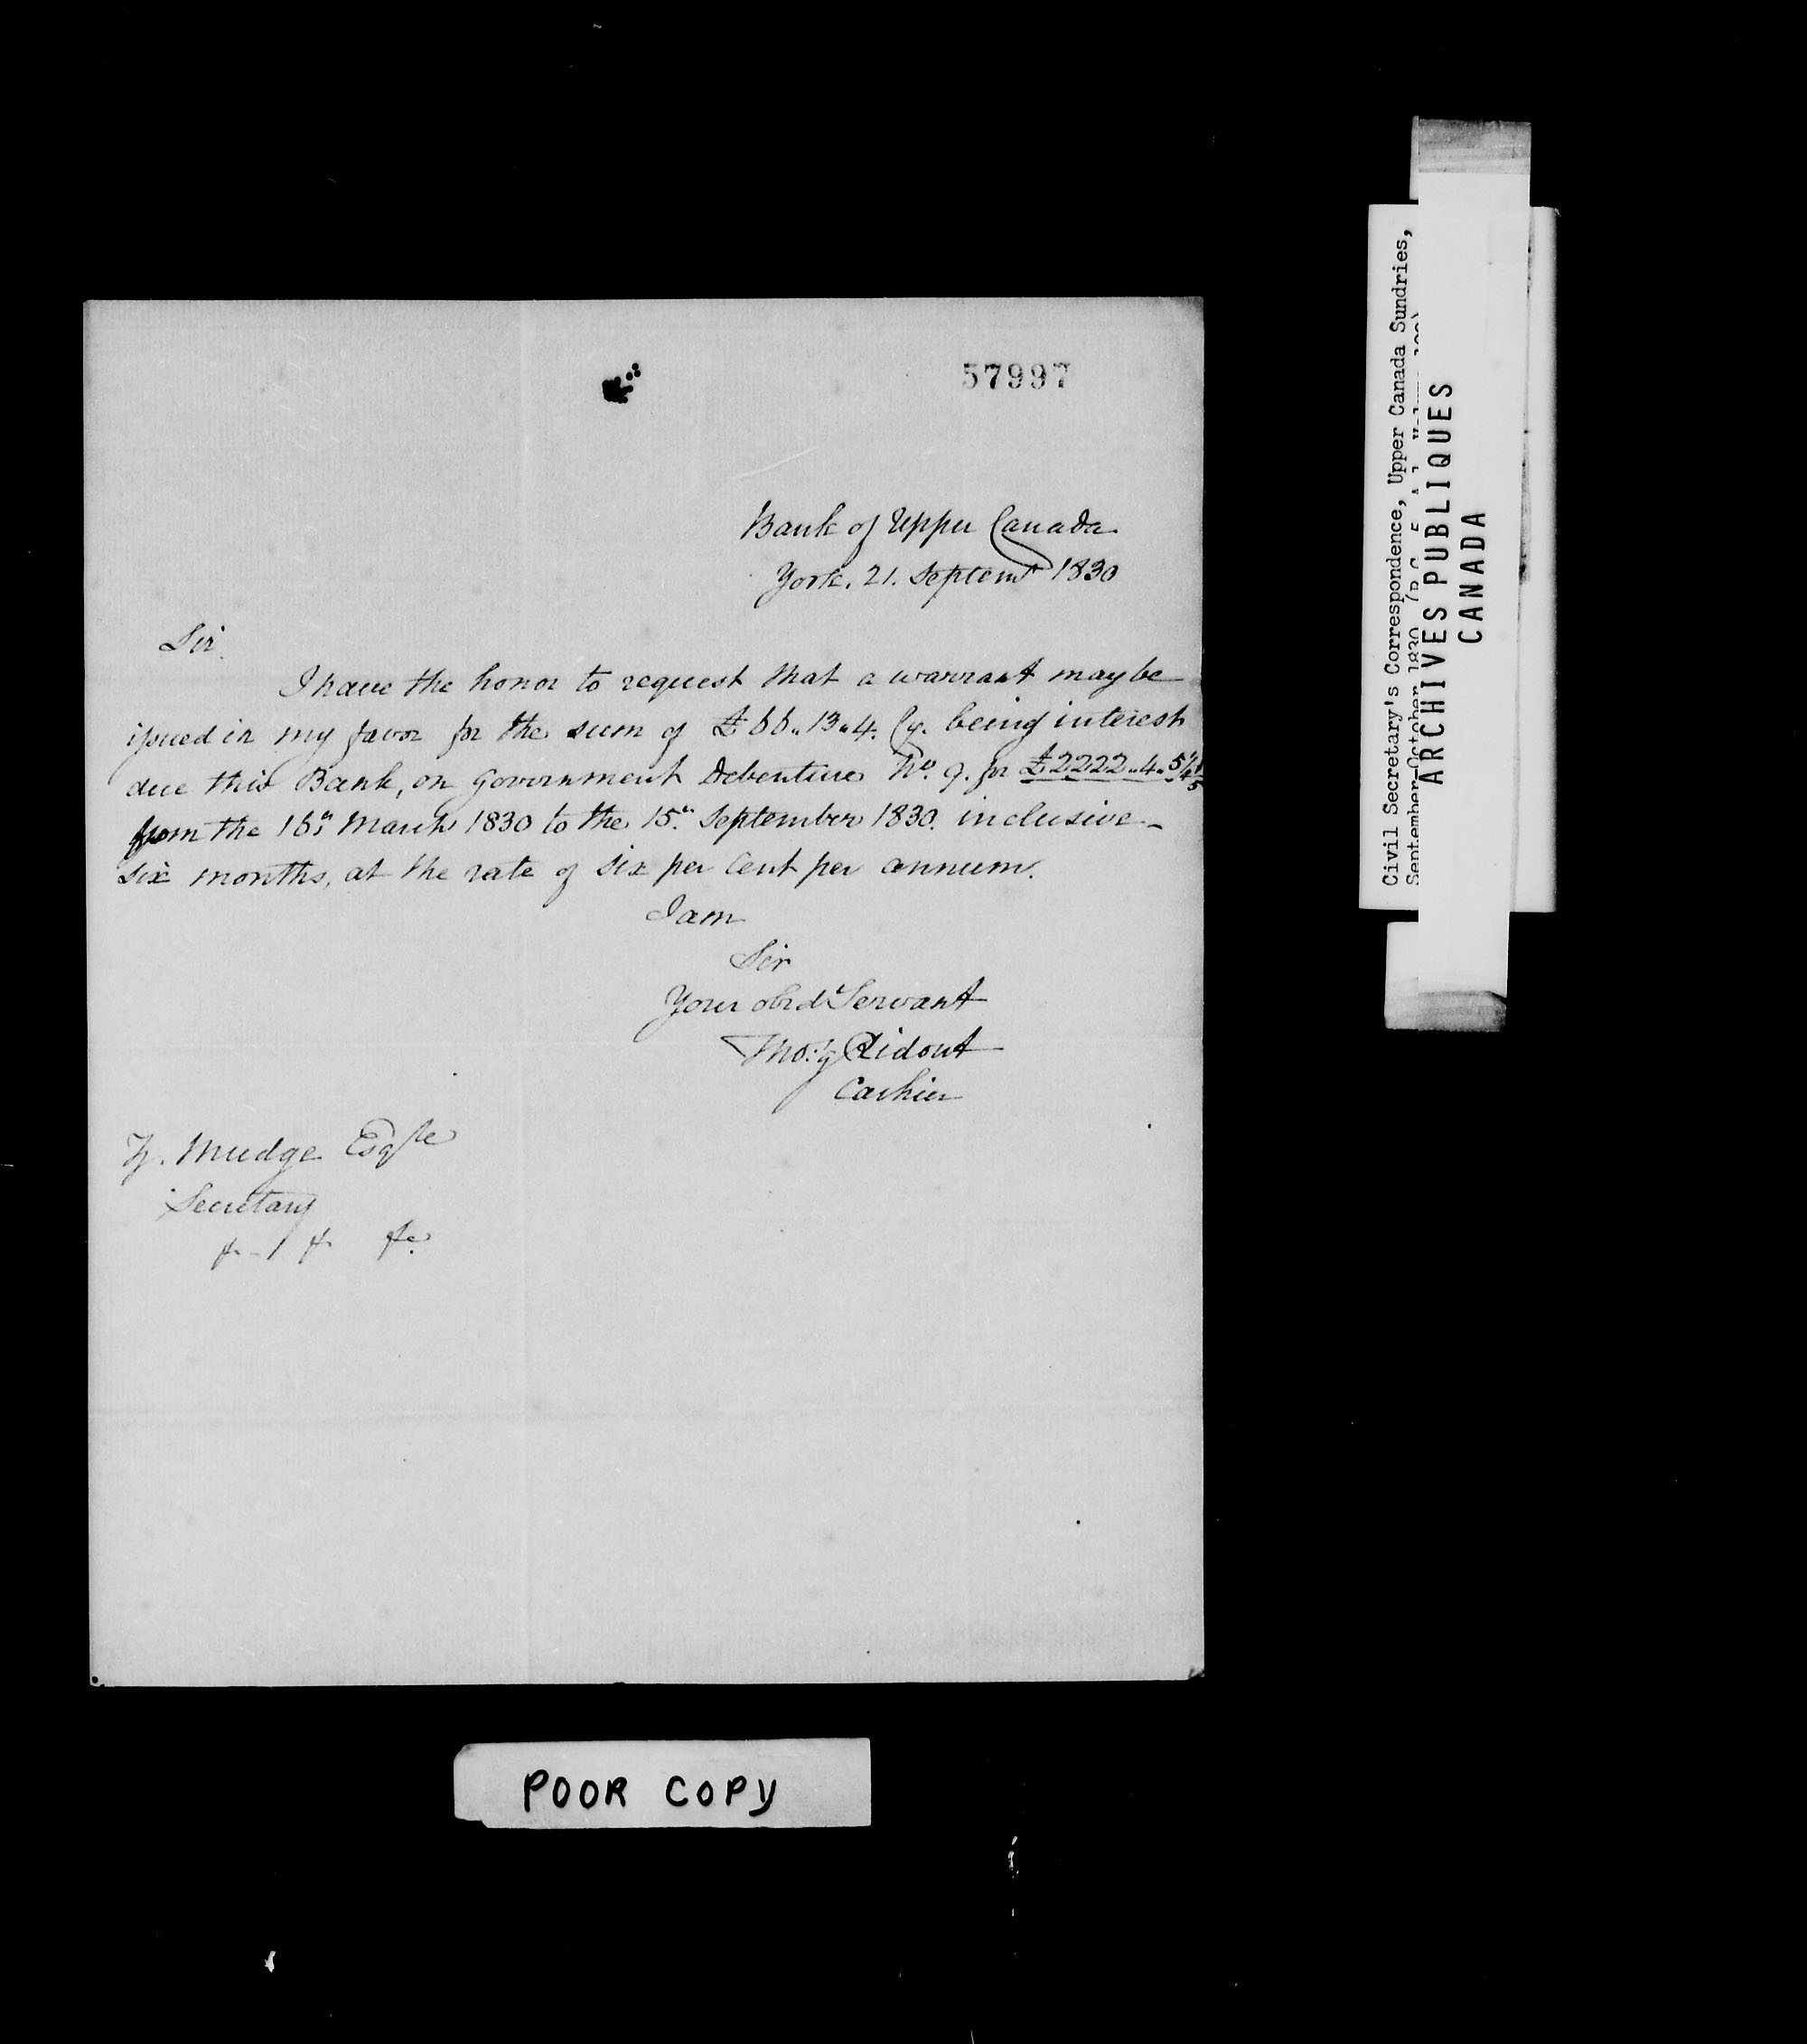 57997
Bank of Upper Canada
York. 21. Septemr 1830
Sir.
I have the honor to request that a warrant may be
issued in my favor for the sum of £66..13..4. Cy. being interest
due this Bank, on Government Debenture No. 9. for £2222..4..5¼
from the 16th March 1830 to the 15th September 1830. inclusive –
six months, at the rate of six per Cent per annum.
I am
Sir
Your obedt Servant
Tho: G Ridout
Cashier
Z. Mudge Esqre
Secretary
&c &c &c
POOR COPY
Civil Secretary's Correspondence, Upper Canada Sundries,
September-October 1830
ARCHIVES PUBLIQUES
CANADA